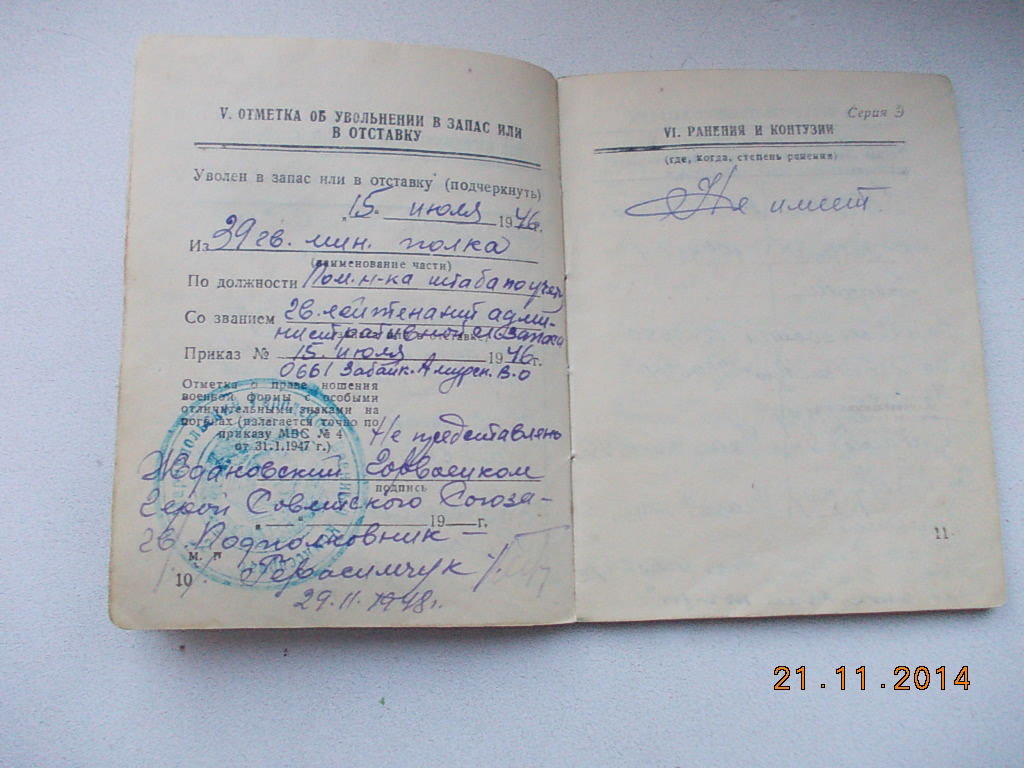 V. ОТМЕТКА ОБ УВОЛЬНЕНИИ В ЗАПАС ИЛИ
В ОТСТАВКУ
Уволен в запас или в отставку (подчеркнуть)
"15" июля 1946г.
Из 39 гв. мин. полка
(наименование части)
По должности Пом. н-ка штаба по учету
Со званием гв. лейтенант адми-
нистративной сл. запаса
Приказ № 15 июля 1946г.
0661 Забайк. Амурск. В.О
Отметка о праве ношения
военной формы с особыми
отличительными знаками на
погонах (излагается точно по
приказу МВС № 4
от 31.1.1947 г.)
Не представлено
Ждановский Горвоенком
подпись
Герой Советского Союза -
" " 19 г.
гв. Подполковник -
м. п
Герасимчук
10
29.11.1948г.
Серия Э
VI. РАНЕНИЯ И КОНТУЗИИ
(где, когда, степень ранения)
Не имеет
11
21.11.2014